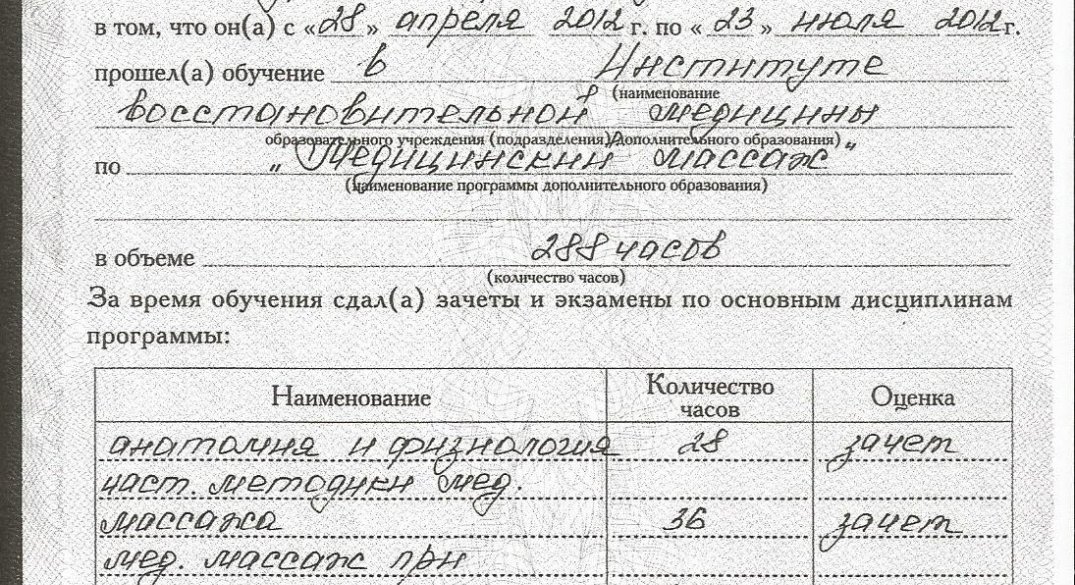 в том, что он(а) с «28» апреля 2012 г. по «23» июля 2012 г.
прошел(а) обучение в Институте
(наименование
восстановительной медицины
образовательного учреждения (подразделения) дополнительного образования)
по „Медицинский массаж"
(наименование программы дополнительного образования)
в объеме 288 часов
(количество часов)
За время обучения сдал(а) зачеты и экзамены по основным дисциплинам
программы:
Наименование Количество часов Оценка
анатомия и физиология 28 зачет
част. методики мед.
массажа 36 зачет
мед. массаж при